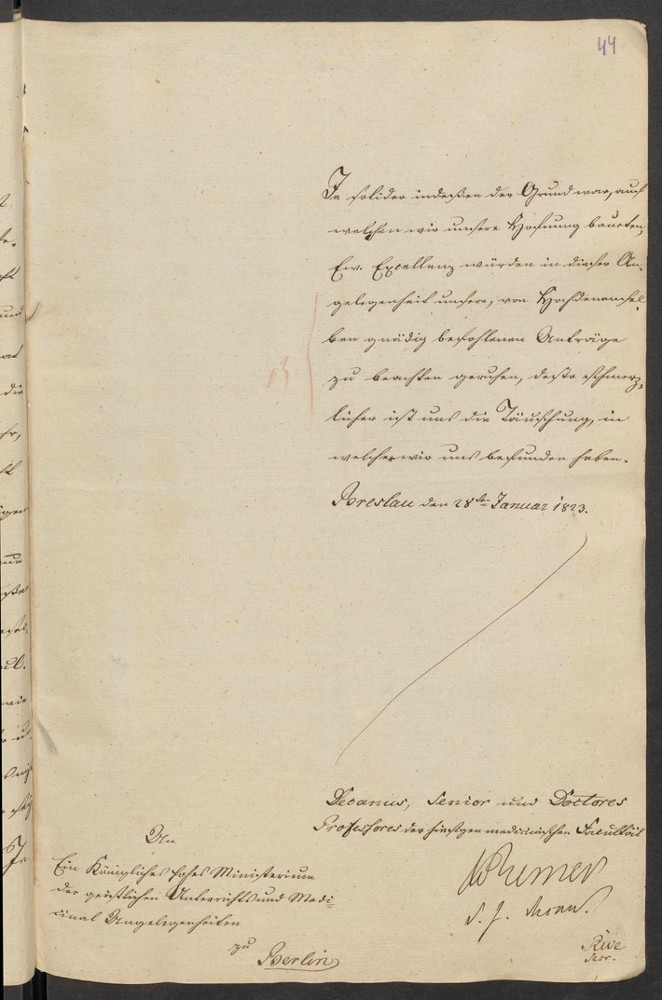 44
Je solider indessen der Grund war, auf
welchen wir unsere Hoffnung bauten,
Ew. Excellenz würden in dieser An-
gelegenheit unsere, von Hochdenensel-
ben gnädig befohlenen Anträge
zu beachten geruhen, desto schmerz-
licher ist uns die Täuschung, in
welcher wir uns befunden haben.
Breslau den 28ten Januar 1823.
Decanus, Senior und Doctores
Professores der hiesigen medicinischen Facultät
An
Ein Königliches hohes Ministerium
der geistlichen Unterrichts und Medi-
cinal Angelegenheiten
zu
Berlin